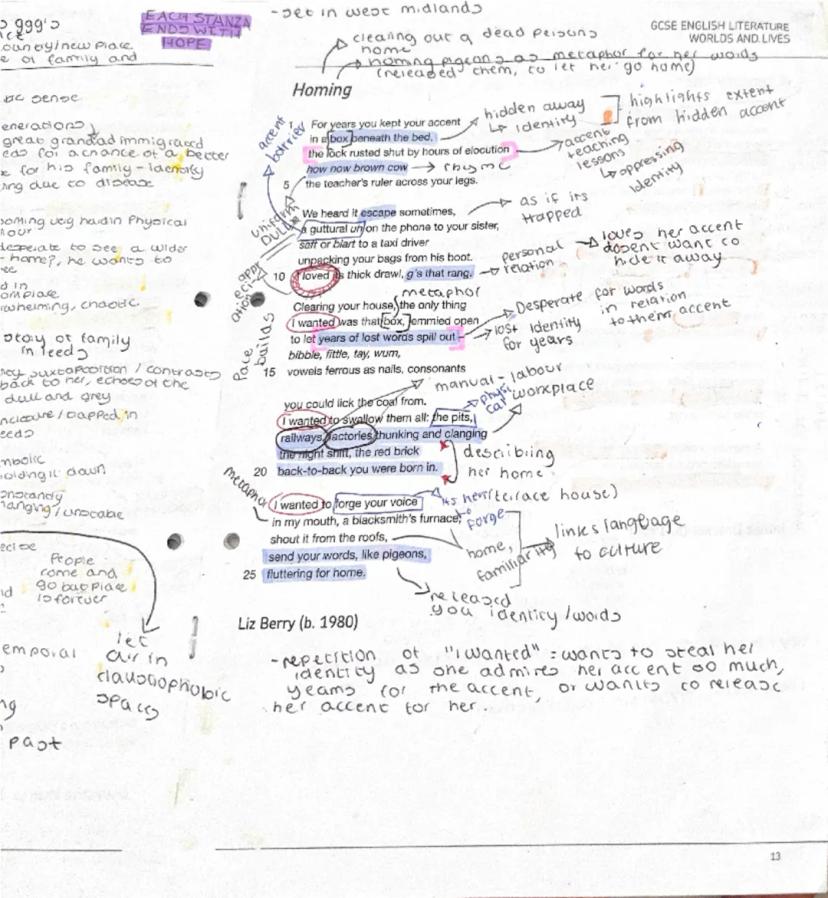 EACH STANZA
ENDS WITH
HOPE
-set in west midlands
clearing out a dead persons
home
homing pigeons as metaphor for her words
(released them, to let her go home)
GCSE ENGLISH LITERATURE
WORLDS AND LIVES
Homing
For years you kept your accent
in a box beneath the bed,
the lock rusted shut by hours of elocution
how now brown cow
5 the teacher's ruler across your legs.
We heard it escape sometimes,
a guttural uh on the phone to your sister,
saft or blart to a taxi driver
unpacking your bags from his boot.
10 I loved its thick drawl, g's that rang.
Clearing your house, the only thing
I wanted was that box, jemmied open
to let years of lost words spill out –
bibble, fittle, tay, wum,
15 vowels ferrous as nails, consonants
you could lick the coal from.
I wanted to swallow them all: the pits,
railways, factories thunking and clanging
the night shift, the red brick
20 back-to-back you were born in.
I wanted to forge your voice
in my mouth, a blacksmith's furnace;
shout it from the roofs,
send your words, like pigeons,
25 fluttering for home.
Liz Berry (b. 1980)
accent
barrier
hidden away
↳ identity
highlights extent
from hidden accent
→ rhyme
accent
teaching
lessons
↳ oppressing
identity
as if its
trapped
personal
relation
loves her accent
dosent want to
hide it away
metaphor
Desperate for words
in relation
to them accent
lost identity
for years
Pace
builds
manual-labour
physical
workplace
describing
her home
metaphor
its hers (terrace house)
to
forge
home,
familiarity
links language
to culture
released
you identity/words
-repetition of "I wanted" = wants to steal her
identity as one admires her accent so much,
yearns for the accent, or wants to release
her accent for her.
generations)
great grandad immigrated
for a chance of a better
for his family - identity
due to disease
very hard in Physical
desperate to see a wider
home?, he wants to
stay of family
in leeds
juxtaposition / contrasts
back to her, echoes of the
dull and grey
trapped in
holding it down
constantly
People
come and
go but place
is forever
let
air in
claustrophobic
spaces
past
13